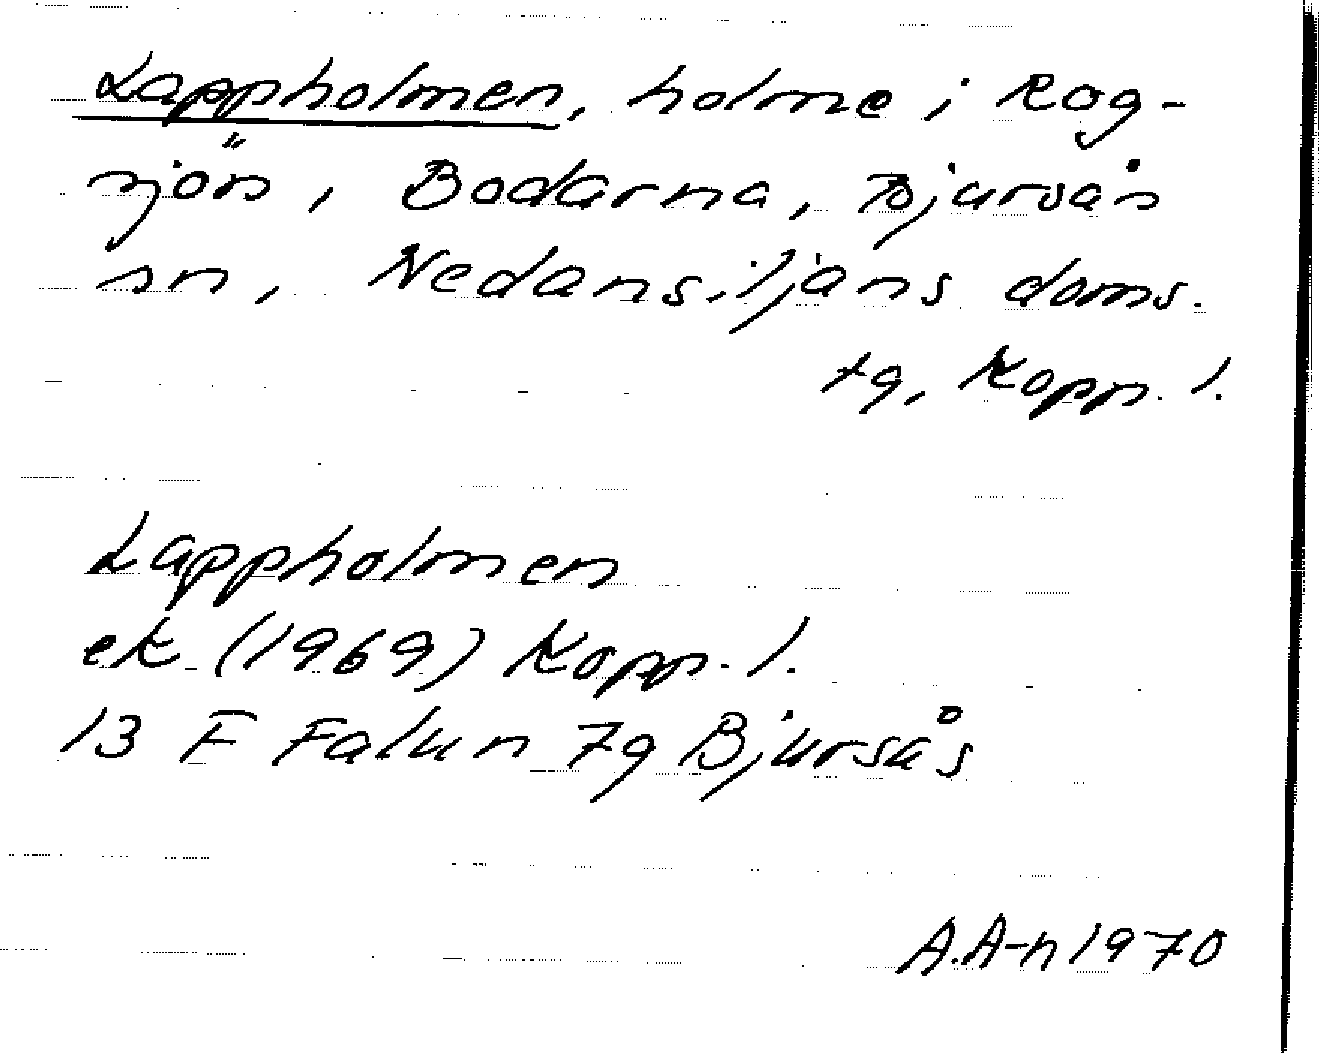 Lappholmen, holme i Rog-
sjön, Bodarna, Bjursås
sn, Nedansiljans doms.
tg, Kopp. l.
Lappholmen
ek (1969) Kopp. l.
13 F Falun 7g Bjursås
A.A-n 1970